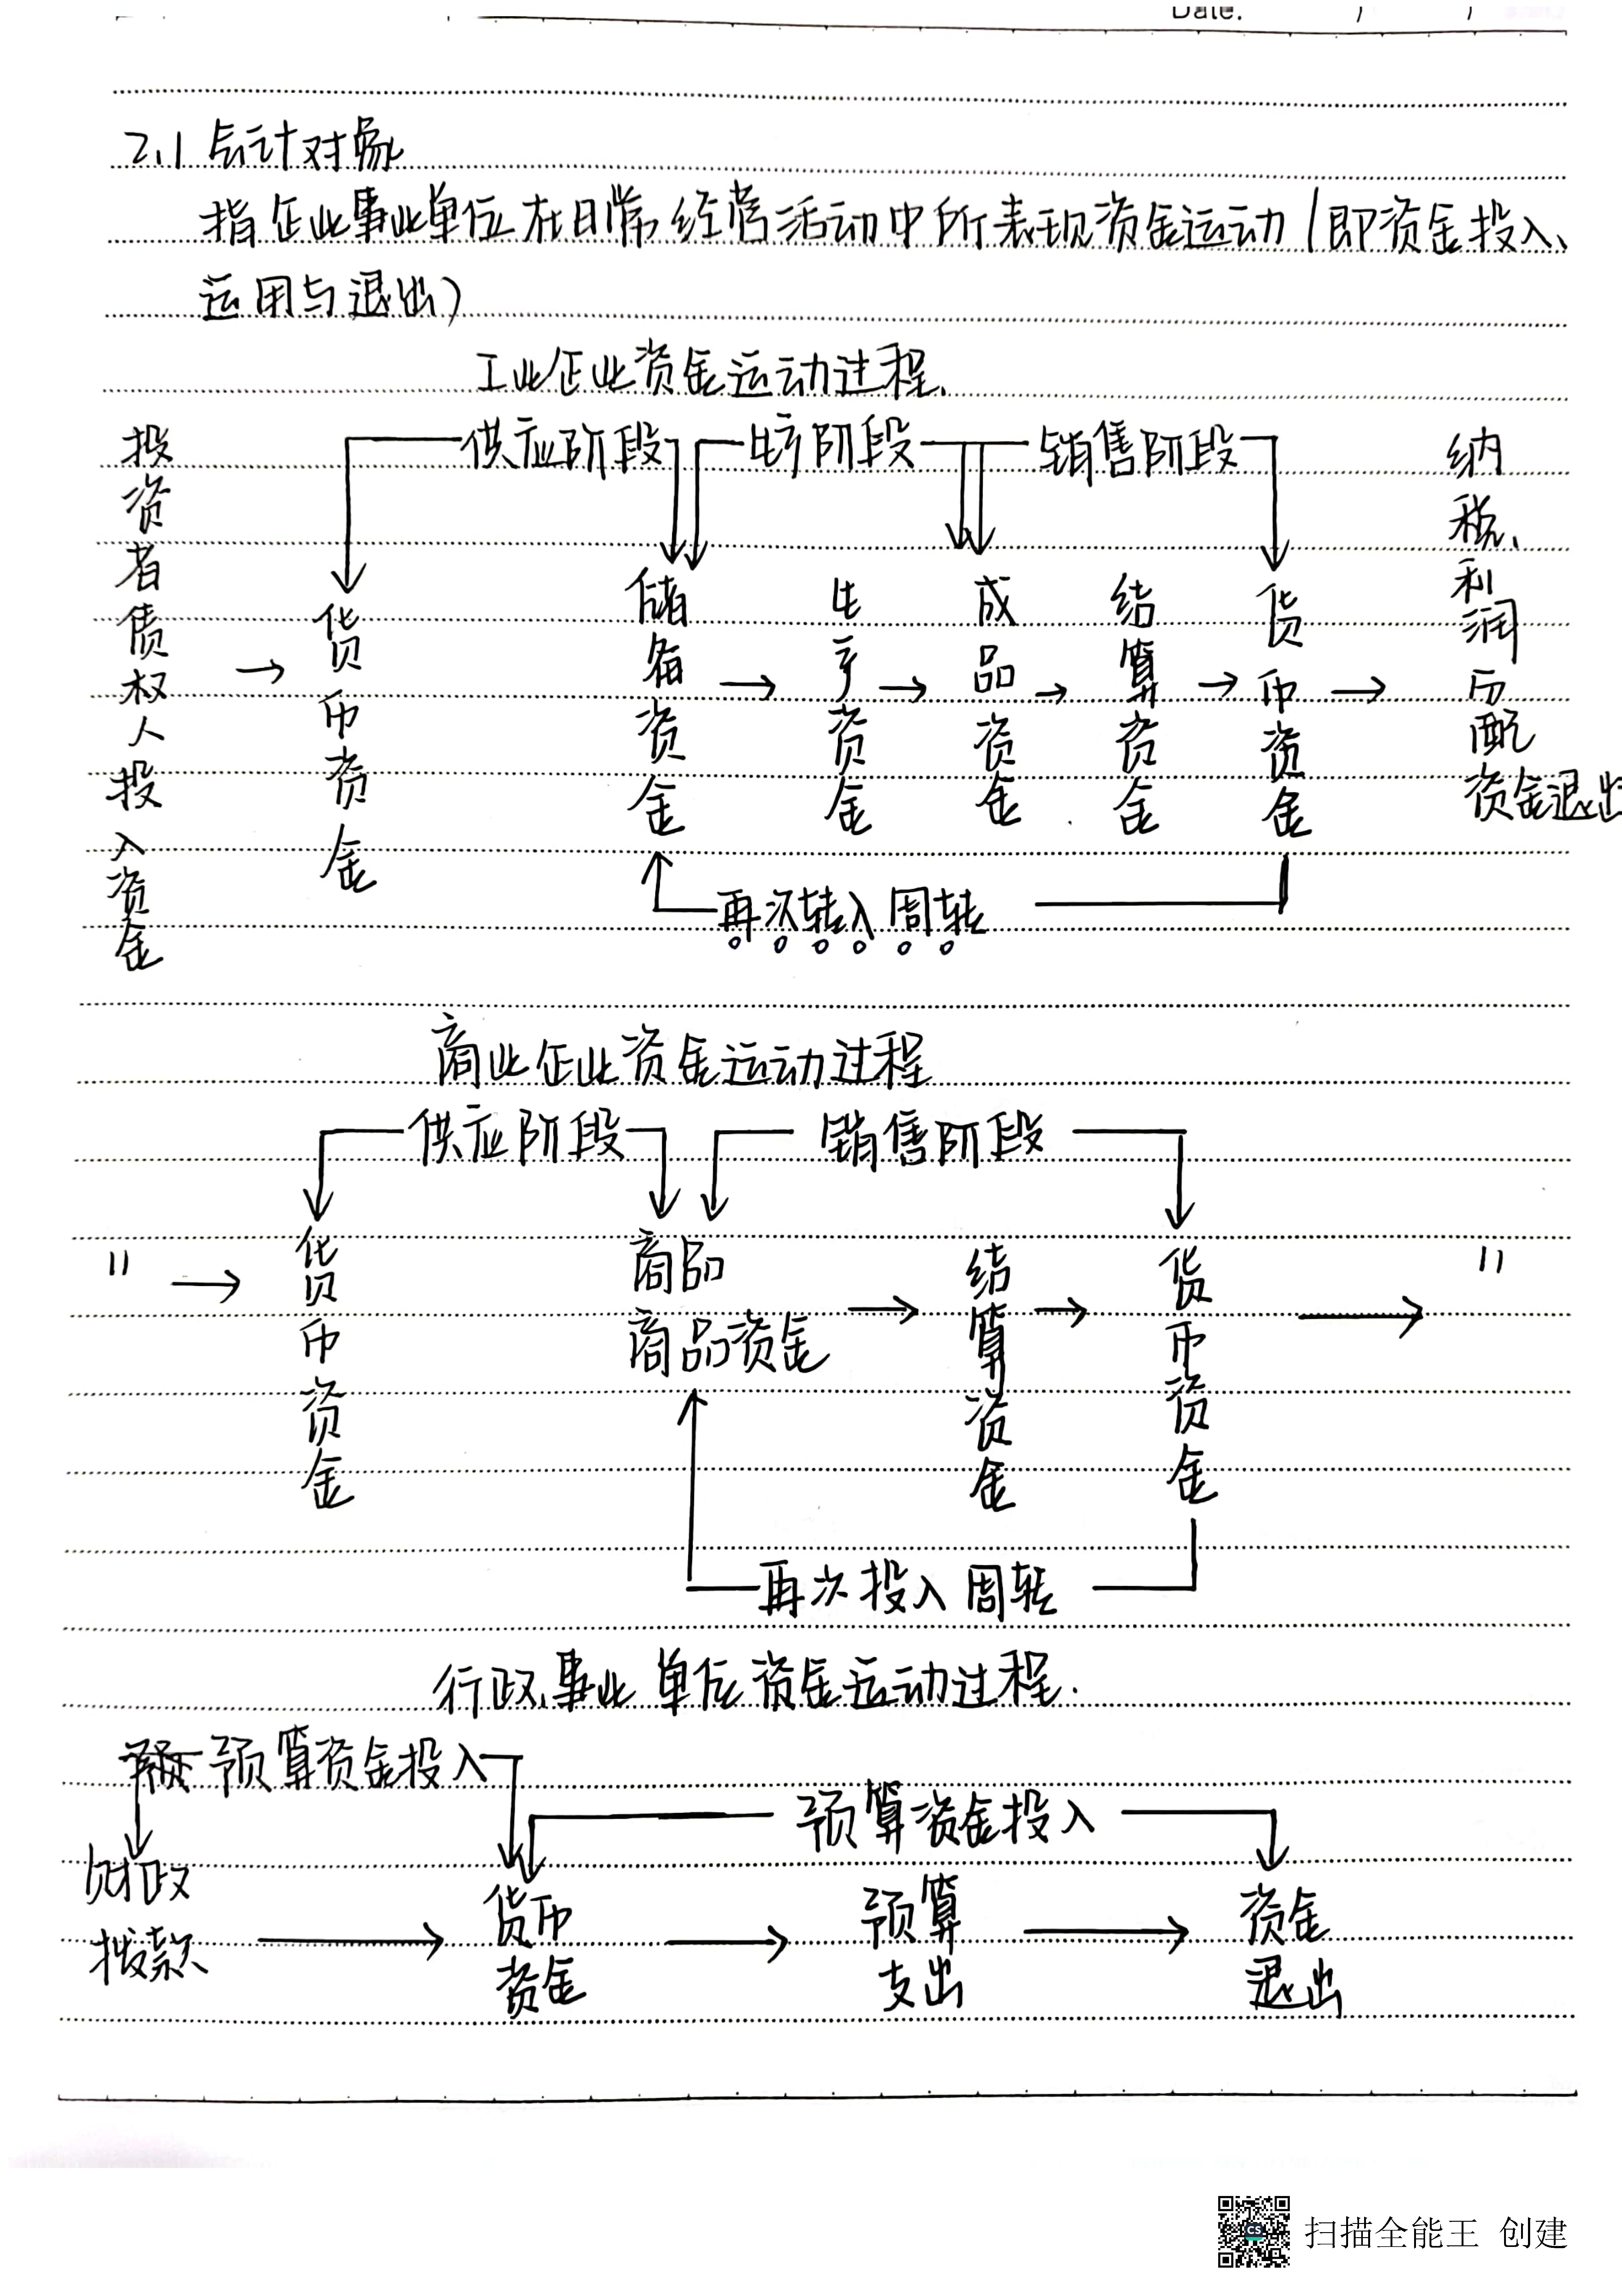 Date. / /
2.1 会计对象
指企业事业单位在日常经营活动中所表现资金运动(即资金投入、
运用与退出)
工业企业资金运动过程.
供应阶段 生产阶段 销售阶段
投资者债权人投入资金
→
货币资金
储备资金
→
生产资金
→
成品资金
→
结算资金
→
货币资金
→
纳税、利润分配
资金退出
再次转入周转
商业企业资金运动过程
供应阶段 销售阶段
〃 →
货币资金
商品
商品资金
→
结算资金
→
货币资金
→
〃
再次投入周转
行政事业单位资金运动过程.
预算资金投入
预算资金投入
财政
拨款
→
货币
资金
→
预算
支出
→
资金
退出
CS
扫描全能王 创建